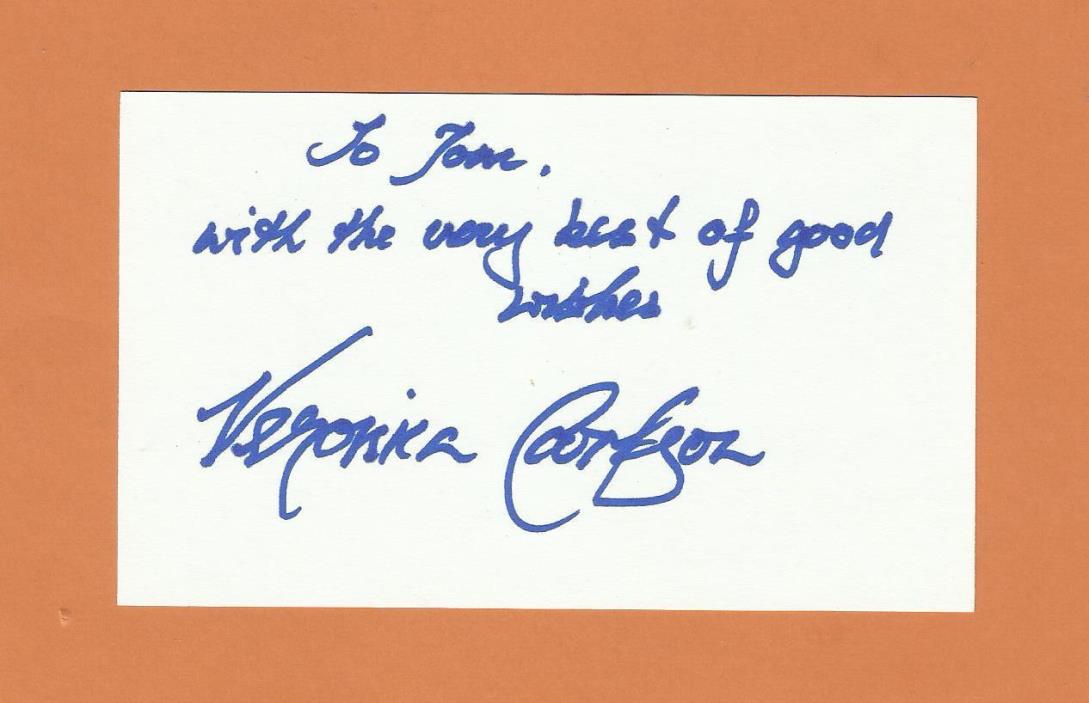 To Tom.
with the very best of good
wishes
Veronika